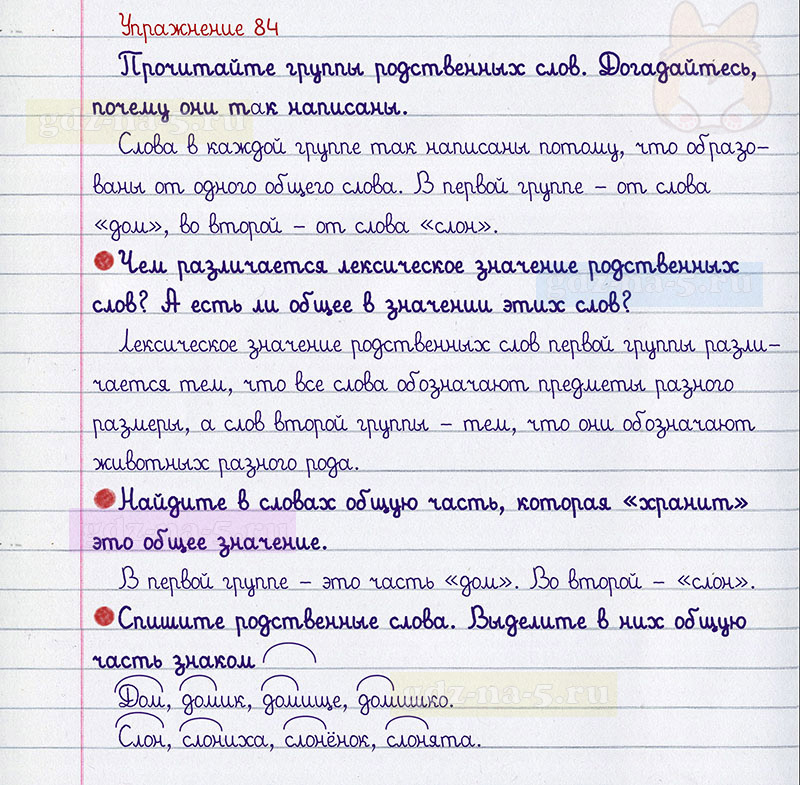 Упражнение 84
Прочитайте группы родственных слов. Догадайтесь,
почему они так написаны.
Слова в каждой группе так написаны потому, что образо-
ваны от одного общего слова. В первой группе – от слова
«дом», во второй – от слова «слон».
Чем различается лексическое значение родственных
слов? А есть ли общее в значении этих слов?
Лексическое значение родственных слов первой группы разли-
чается тем, что все слова обозначают предметы разного
размеры, а слов второй группы – тем, что они обозначают
животных разного рода.
Найдите в словах общую часть, которая «хранит»
это общее значение.
В первой группе – это часть «дом». Во второй – «слон».
Спишите родственные слова. Выделите в них общую
часть знаком
Дом, домик, домище, домишко.
Слон, слониха, слонёнок, слонята.
gdz-na-5.ru
gdz-na-5.ru
gdz-na-5.ru
gdz-na-5.ru